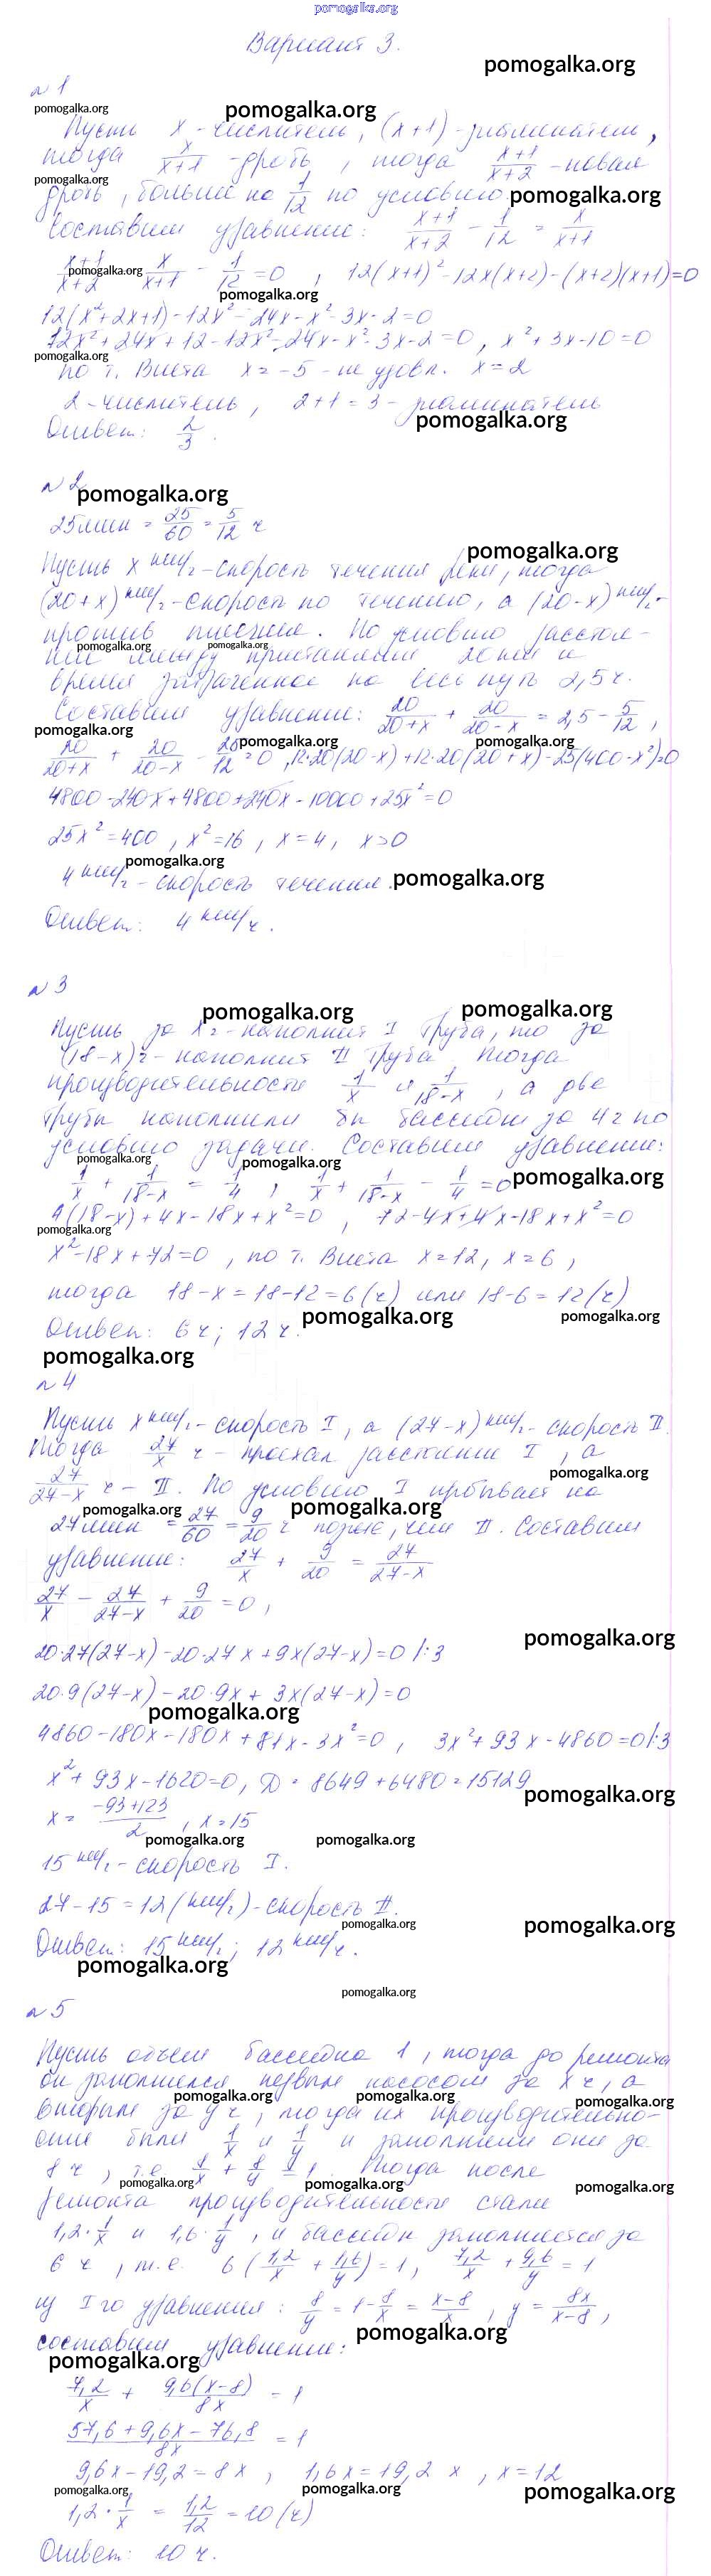 pomogalka.org
Вариант 3.
pomogalka.org
№ 1
pomogalka.org pomogalka.org
Пусть x - числитель, (x+1) - знаменатель,
тогда x/(x+1) - дробь, тогда (x+1)/(x+2) - новая
pomogalka.org
дробь, больше на 1/12 по условию. pomogalka.org
Составим уравнение: (x+1)/(x+2) - 1/12 = x/(x+1)
(x+1)/(x+2) - x/(x+1) - 1/12 = 0, 12(x+1)² - 12x(x+2) - (x+2)(x+1) = 0
pomogalka.org
pomogalka.org
12(x²+2x+1) - 12x² - 24x - x² - 3x - 2 = 0
12x² + 24x + 12 - 12x² - 24x - x² - 3x - 2 = 0, x² + 3x - 10 = 0
pomogalka.org
по т. Виета x = -5 - не удовл. x = 2
2 - числитель, 2+1 = 3 - знаменатель
pomogalka.org
Ответ: 2/3.
№ 2
pomogalka.org
25 мин = 25/60 = 5/12 ч
pomogalka.org
Пусть x км/ч - скорость течения реки, тогда
(20+x) км/ч - скорость по течению, а (20-x) км/ч -
против течения. По условию расстоя-
pomogalka.org pomogalka.org
ние между пристанями 20 км и
время затраченное на весь путь 2,5 ч.
Составим уравнение: 20/(20+x) + 20/(20-x) = 2,5 - 5/12,
pomogalka.org
20/(20+x) + 20/(20-x) - 25/12 = 0, 12·20(20-x) + 12·20(20+x) - 25(400-x²) = 0
pomogalka.org pomogalka.org
4800 - 240x + 4800 + 240x - 10000 + 25x² = 0
25x² = 400, x² = 16, x = 4, x > 0
pomogalka.org
4 км/ч - скорость течения. pomogalka.org
Ответ: 4 км/ч.
№ 3
pomogalka.org pomogalka.org
Пусть за x ч - наполнит I труба, то за
(18-x) ч - наполнит II труба. Тогда
производительности 1/x и 1/(18-x), а две
трубы наполнили бы бассейн за 4 ч по
условию задачи. Составим уравнение:
pomogalka.org pomogalka.org
1/x + 1/(18-x) = 1/4, 1/x + 1/(18-x) - 1/4 = 0 pomogalka.org
4(18-x) + 4x - 18x + x² = 0, 72 - 4x + 4x - 18x + x² = 0
pomogalka.org
x² - 18x + 72 = 0, по т. Виета x = 12, x = 6,
тогда 18-x = 18-12 = 6 (ч) или 18-6 = 12 (ч)
pomogalka.org pomogalka.org
Ответ: 6 ч; 12 ч.
pomogalka.org
№ 4
Пусть x км/ч - скорость I, а (27-x) км/ч - скорость II.
Тогда 27/x ч - проехал расстояние I, а
pomogalka.org
27/(27-x) ч - II. По условию I прибывает на
pomogalka.org pomogalka.org
27 мин = 27/60 = 9/20 ч позже, чем II. Составим
уравнение: 27/x + 9/20 = 27/(27-x)
27/x - 27/(27-x) + 9/20 = 0,
pomogalka.org
20·27(27-x) - 20·27x + 9x(27-x) = 0 |:3
20·9(27-x) - 20·9x + 3x(27-x) = 0
pomogalka.org
4860 - 180x - 180x + 81x - 3x² = 0, 3x² + 93x - 4860 = 0 |:3
x² + 93x - 1620 = 0, D = 8649 + 6480 = 15129
pomogalka.org
x = (-93+123)/2, x = 15
pomogalka.org pomogalka.org
15 км/ч - скорость I.
27 - 15 = 12 (км/ч) - скорость II.
pomogalka.org pomogalka.org
Ответ: 15 км/ч; 12 км/ч.
pomogalka.org
pomogalka.org
№ 5
Пусть объем бассейна 1, тогда до ремонта
он заполнялся первым насосом за x ч, а
pomogalka.org pomogalka.org pomogalka.org
вторым за y ч, тогда их производительно-
сти были 1/x и 1/y и заполнили они за
8 ч, т.е. 8/x + 8/y = 1. Тогда после
pomogalka.org pomogalka.org pomogalka.org
ремонта производительности стали
1,2·1/x и 1,6·1/y, и бассейн заполняется за
6 ч, т.е. 6(1,2/x + 1,6/y) = 1, 7,2/x + 9,6/y = 1
из I го уравнения: 8/y = 1 - 8/x = (x-8)/x, y = 8x/(x-8),
pomogalka.org
составим уравнение:
pomogalka.org
7,2/x + 9,6(x-8)/8x = 1
(57,6 + 9,6x - 76,8)/8x = 1
9,6x - 19,2 = 8x, 1,6x = 19,2 x, x = 12
pomogalka.org pomogalka.org pomogalka.org
1,2·1/x = 1,2/12 = 10 (ч)
Ответ: 10 ч.